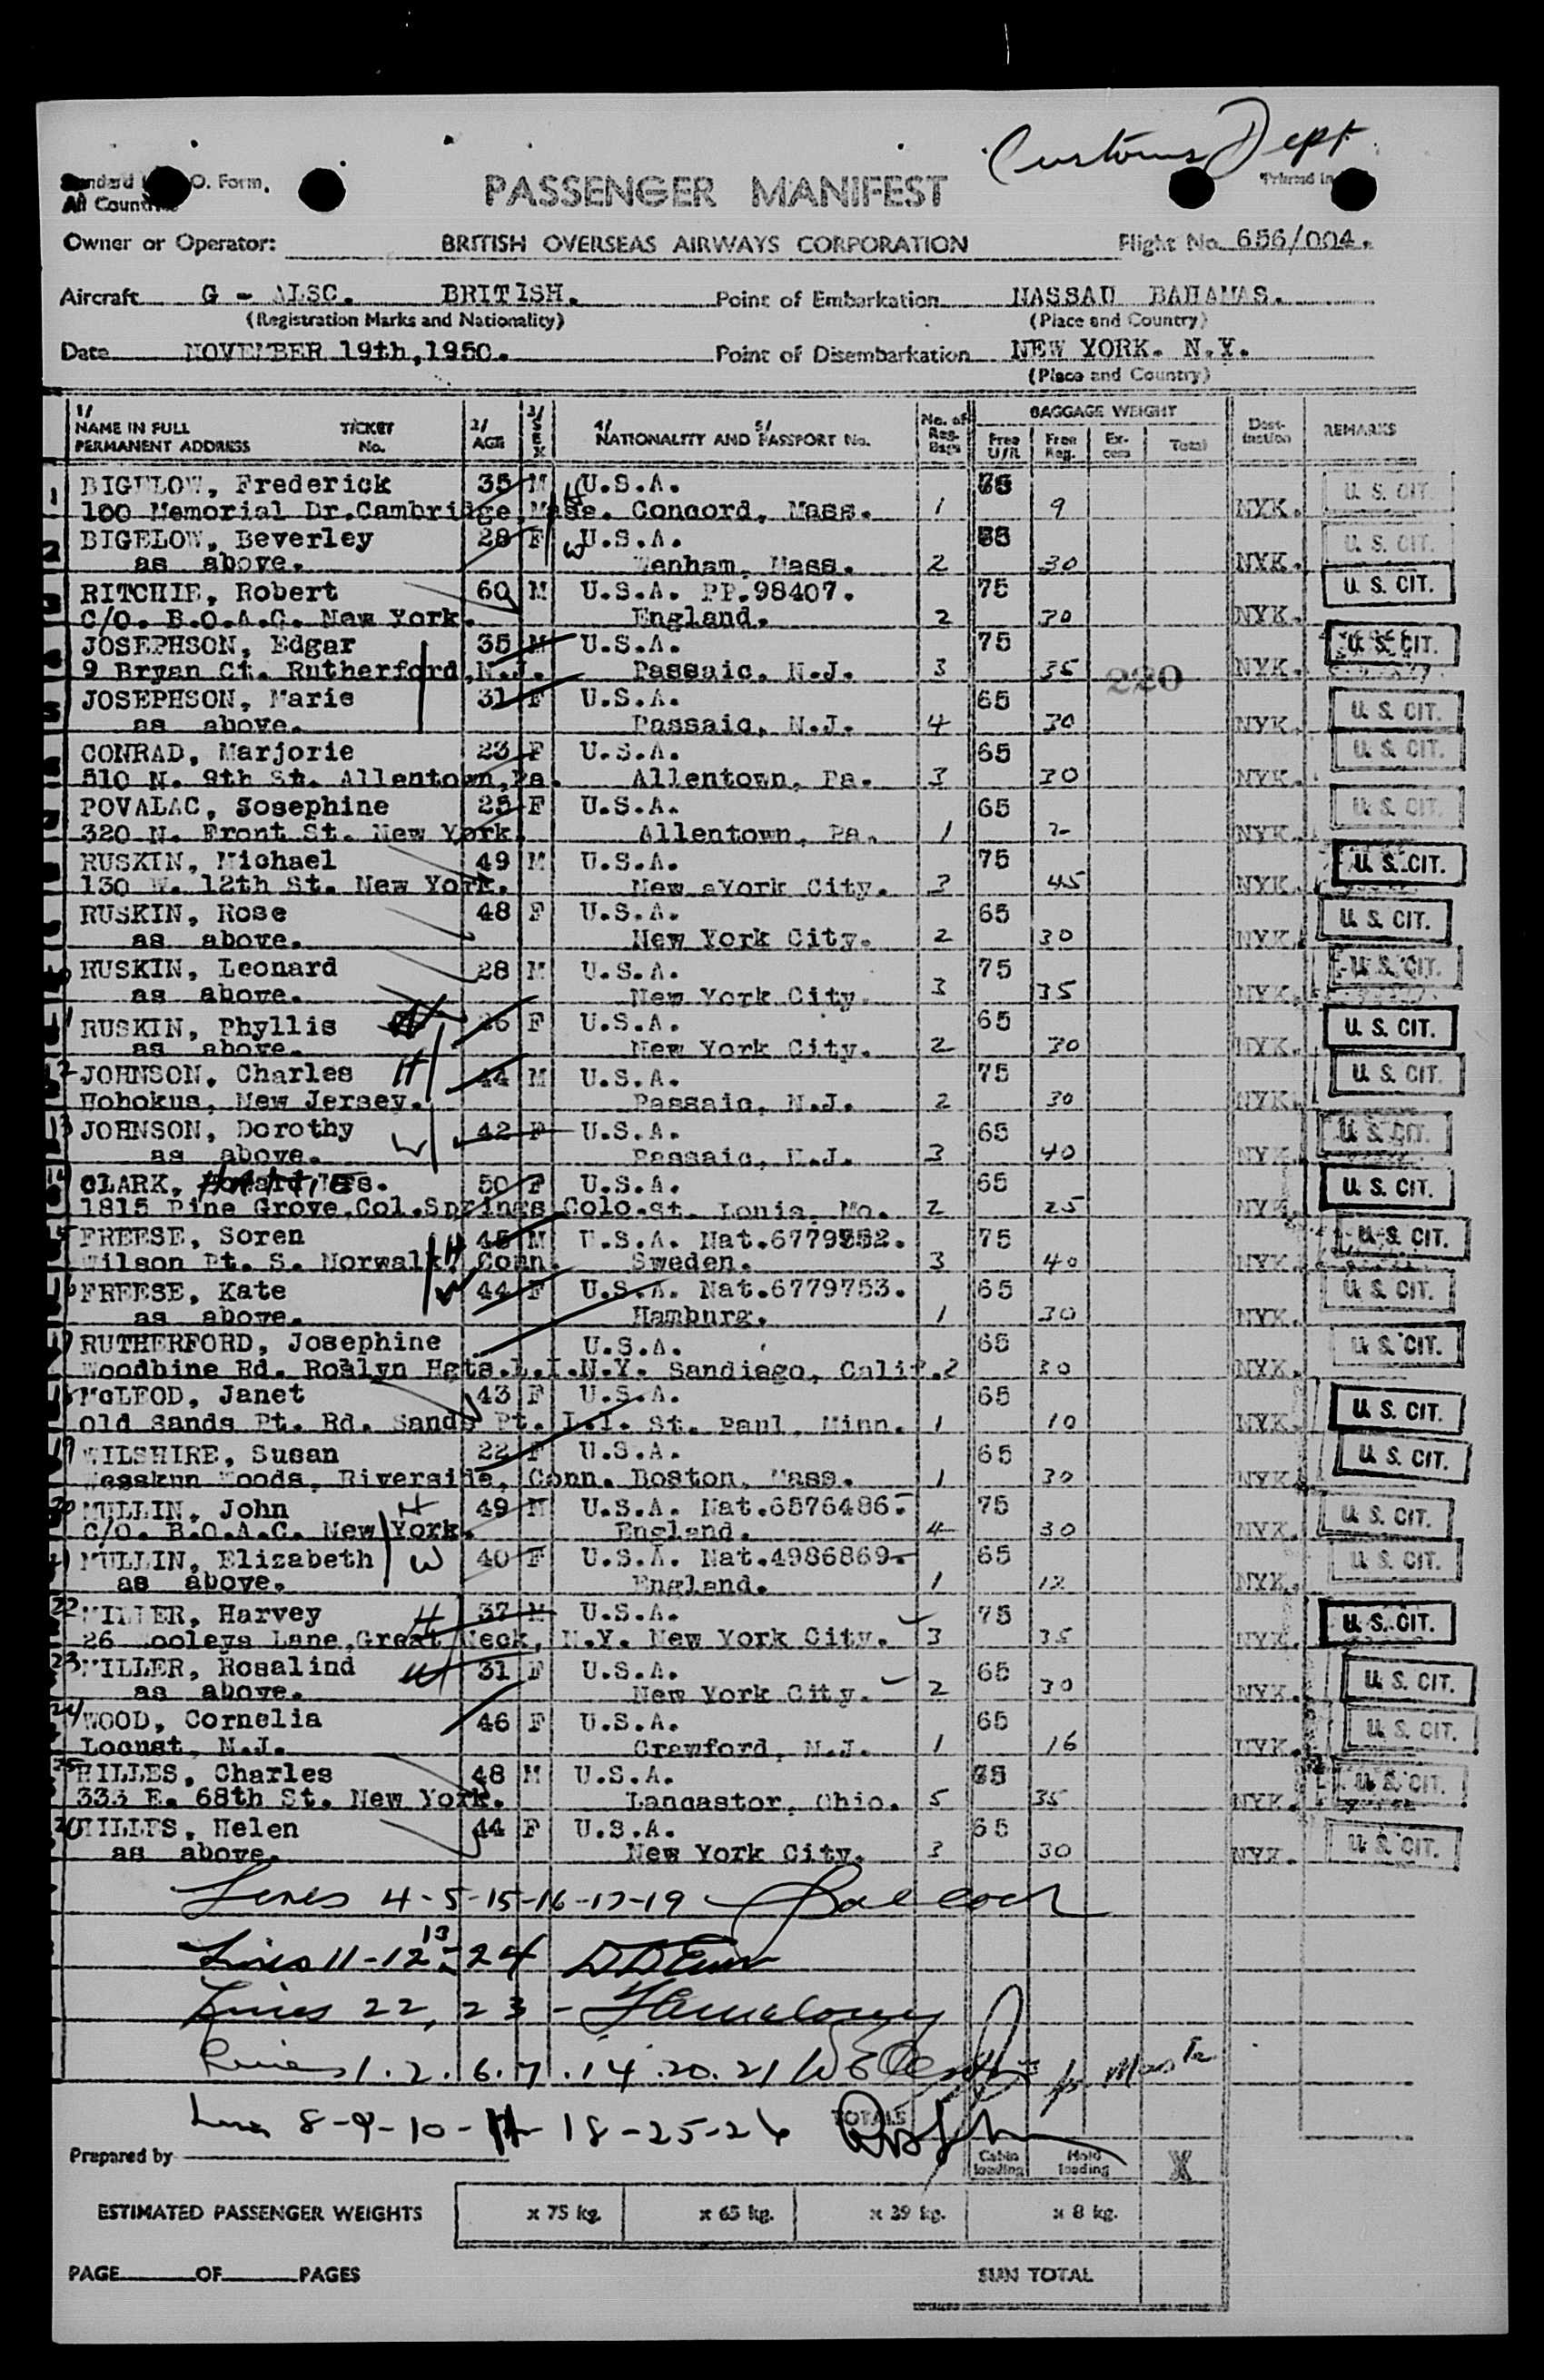 Customs Dept.
Standard O. Form.
All Countries
PASSENGER MANIFEST
Printed in
Owner or Operator: BRITISH OVERSEAS AIRWAYS CORPORATION Flight No. 656/004.
Aircraft G - ALSC. BRITISH. Point of Embarkation NASSAU BAHAMAS.
(Registration Marks and Nationality) (Place and Country)
Date NOVEMBER 19th, 1950. Point of Disembarkation NEW YORK. N.Y.
(Place and Country)
1/ NAME IN FULL PERMANENT ADDRESS TICKET No. 2/ AGE 3/ SEX 4/ NATIONALITY AND 5/ PASSPORT No. No. of Reg. Bags BAGGAGE WEIGHT Free U/R Free Reg. Ex-cess Total Dest-ination REMARKS
1 BIGELOW, Frederick 35 M W U.S.A. 75 U. S. CIT.
100 Memorial Dr.Cambridge,Mass. Concord, Mass. 1 9 NYK.
2 BIGELOW, Beverley 28 F W U.S.A. 65 U. S. CIT.
as above. Wenham, Mass. 2 30 NYK.
3 RITCHIE, Robert 60 M U.S.A. PP.98407. 75 U. S. CIT.
C/O. B.O.A.C. New York. England. 2 30 NYK.
4 JOSEPHSON, Edgar 35 M U.S.A. 75 U. S. CIT.
9 Bryan Ct. Rutherford,N.J. Passaic, N.J. 3 35 220 NYK.
5 JOSEPHSON, Marie 31 F U.S.A. 65 U. S. CIT.
as above. Passaic, N.J. 4 30 NYK.
CONRAD, Marjorie 23 F U.S.A. 65 U. S. CIT.
510 N. 9th St. Allentown,Pa. Allentown, Pa. 3 30 NYK.
POVALAC, Josephine 25 F U.S.A. 65 U. S. CIT.
320 N. Front St. New York. Allentown, Pa. 1 2 NYK.
RUSKIN, Michael 49 M U.S.A. 75 U. S. CIT.
130 W. 12th St. New York. New aYork City. 3 45 NYK.
RUSKIN, Rose 48 F U.S.A. 65 U. S. CIT.
as above. New York City. 2 30 NYK.
RUSKIN, Leonard 28 M U.S.A. 75 U. S. CIT.
as above. New York City. 3 35 NYK.
11 RUSKIN, Phyllis 26 F U.S.A. 65 U. S. CIT.
as above. New York City. 2 30 NYK.
12 JOHNSON, Charles H 44 M U.S.A. 75 U. S. CIT.
Hohokus, New Jersey. Passaic, N.J. 2 30 NYK.
13 JOHNSON, Dorothy W 42 F U.S.A. 65 U. S. CIT.
as above. Passaic, N.J. 3 40 NYK.
CLARK, Mrs. 50 F U.S.A. 65 U. S. CIT.
1815 Pine Grove,Col.Springs Colo. St. Louis, Mo. 2 25 NYK.
FREESE, Soren H 45 M U.S.A. Nat.6779552. 75 U. S. CIT.
Wilson Pt. S. Norwalk, Conn. Sweden. 3 40 NYK.
16 FREESE, Kate W 44 F U.S.A. Nat.6779753. 65 U. S. CIT.
as above. Hamburg. 1 30 NYK.
17 RUTHERFORD, Josephine U.S.A. 65 U. S. CIT.
Woodbine Rd. Roslyn Hgts.L.I.N.Y. Sandiego, Calif. 2 30 NYK.
McLEOD, Janet 43 F U.S.A. 65 U. S. CIT.
Old Sands Pt. Rd. Sands Pt. L.I. St. Paul, Minn. 1 10 NYK.
19 WILSHIRE, Susan 22 F U.S.A. 65 U. S. CIT.
Woods, Riverside, Conn. Boston, Mass. 1 30 NYK.
20 MULLIN, John H 49 M U.S.A. Nat.6576486. 75 U. S. CIT.
C/O. B.O.A.C. New York. England. 4 30 NYK.
21 MULLIN, Elizabeth W 40 F U.S.A. Nat.4986869. 65 U. S. CIT.
as above. England. 1 12 NYK.
22 MILLER, Harvey H 37 M U.S.A. 75 U. S. CIT.
26 Wooleys Lane,Great Neck, N.Y. New York City. 3 35 NYK.
23 MILLER, Rosalind W 31 F U.S.A. 65 U. S. CIT.
as above. New York City. 2 30 NYK.
24 WOOD, Cornelia 46 F U.S.A. 65 U. S. CIT.
Locust, N.J. Crawford, N.J. 1 16 NYK.
25 HILLES, Charles 48 M U.S.A. 75 U. S. CIT.
333 E. 68th St. New York. Lancastor, Ohio. 5 35 NYK.
HILLES, Helen 44 F U.S.A. 65 U. S. CIT.
as above. New York City. 3 30 NYK.
Lines 4-5-15-16-17-19
Lines 11-12-13-24
Lines 22, 23 -
Lines 1.2.6.7.14.20.21
Lines 8-9-10- 18-25-26 TOTALS
Prepared by Cabin loading Hold loading X
ESTIMATED PASSENGER WEIGHTS x 75 kg. x 65 kg. x 39 kg. x 8 kg.
PAGE OF PAGES SUN TOTAL